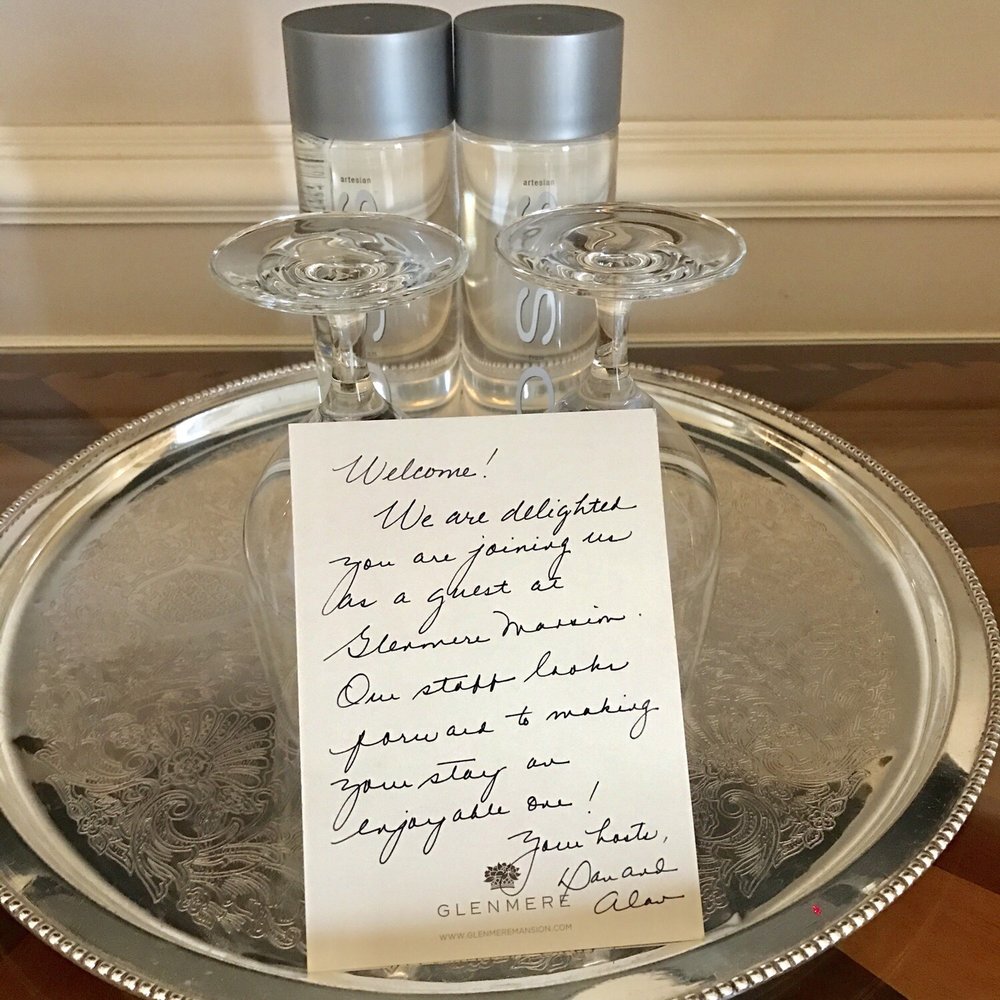 artesian
artesian
Welcome!
We are delighted
you are joining us
as a guest at
Glenmere Mansion.
Our staff looks
forward to making
your stay an
enjoyable one!
Your hosts,
Dan and
Alan
GLENMERE
WWW.GLENMEREMANSION.COM